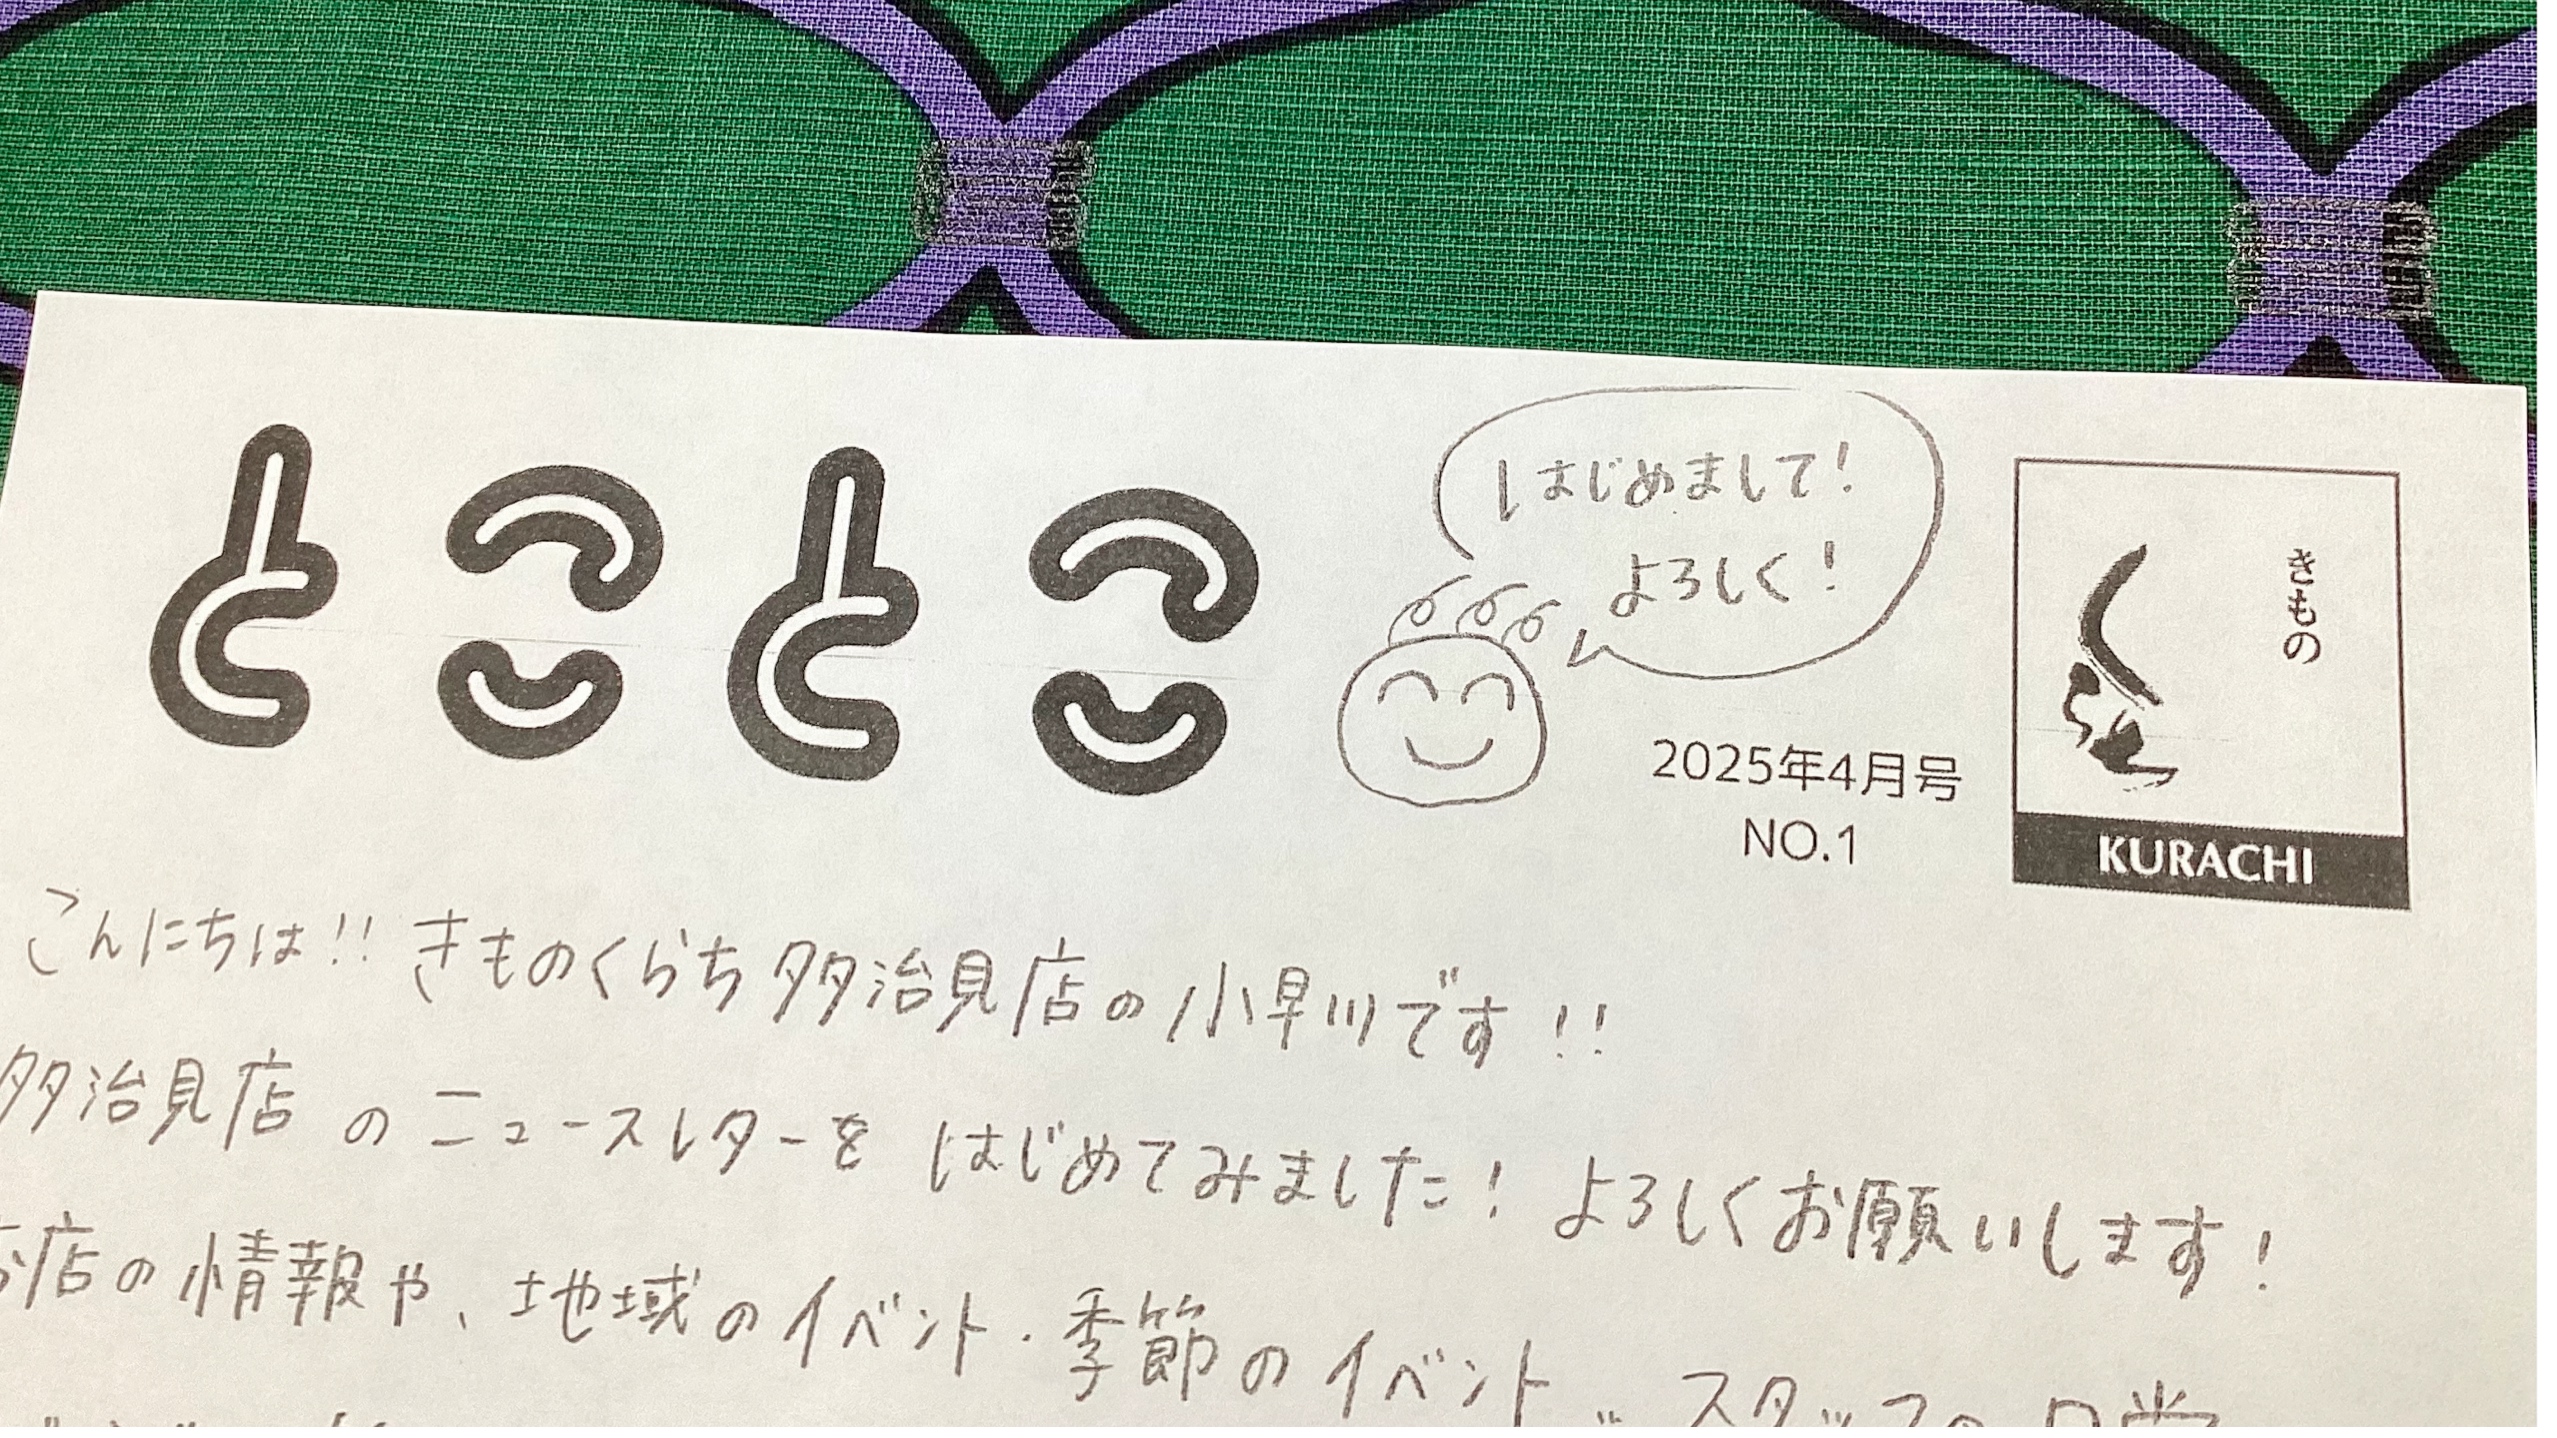 とことこ
はじめまして!
よろしく!
2025年4月号
NO.1
きもの
くらち
KURACHI
こんにちは!! きものくらち多治見店の小早川です!!
多治見店のニュースレターをはじめてみました! よろしくお願いします!
お店の情報や、地域のイベント・季節のイベント、スタッフの日常